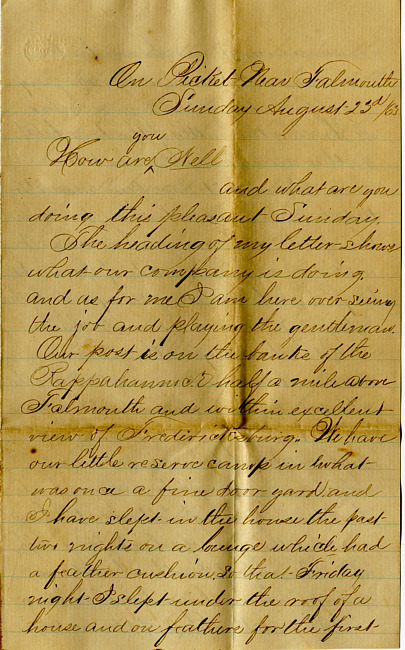 On Picket Near Falmouth
Sunday August 23d /63
you
How are ^ Nell
and what are you
doing this pleasant Sunday
The heading of my letter shows
what our company is doing
and as for me I am here over seeing
the job and playing the gentleman.
Our post is on the banks of the
Rappahannock half a mile above
Falmouth and within excellent
view of Fredericksburg. We have
our little reserve camp in what
was once a fine door yard and
I have slept in the house the past
two nights on a lounge which had
a feather cushion, so that Friday
night I slept under the roof of a
house and on feathers for the first